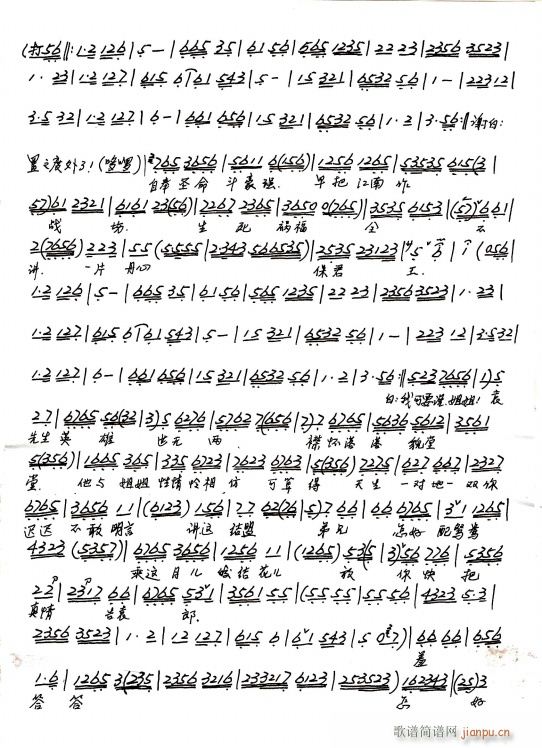 (打56‖: 1·2 126 | 5 — | 665 35 | 61 56 | 665 1235 | 22 23 | 2356 3523 |
1· 23 | 1·2 127 | 615 6 | 61 543 | 5 - | 15 321 | 6532 56 | 1 — | 2231 2 |
3·5 32 | 1·2 127 | 6 - | 661 656 | 15 321 | 6532 56 | 1· 2 | 3·56 :‖ 谢白:
置之度外了! (嘿嘿) | 765 3656 | 5611 6(156) | 1256 1265 | 53535 615(3 |
自奉圣命 斗袁强. 早把江南作
57) 61 2321 | 6161 23(56) | 2267 2365 | 36500(765) | 3535 6153 | (57) 661 |
战 场. 生死祸福 全不
2(7656) | 223 | 55 (5555 | 2343 5606535) | 2535 23123 | 5 6 | 1 (056 |
讲. 一片丹心 保君王.
1·2 126 | 5 - | 665 35 | 61 56 | 565 1235 | 22 23 | 2356 3523 | 1· 23 |
1·2 127 | 615 6 | 61 543 | 5 - | 15 321 | 6532 56 | 1 — | 223 12 | 3·5 32 |
1·2 127 | 6 - | 661 656 | 15 321 | 6532 56 | 1· 2 | 3· 56 :‖ 5237656 | 1) 5
白:我可要漫.姐姐! 袁
27 | 6765 56(32 | 3) 5 6276 | 57627(656 | 7)7 6765 | 5636 5612 | 3561
先生英雄 也无两. 襟怀潇潇貌堂
5(356) | 1665 365 | 335 6723 | 7623 6763 | 5(356) 7275 | 627 667 | 2327
堂. 他与姐姐性情恰相仿 可算得 天生一对地一双你
6765 | 3656 11 | (6123) 156 | 77 62(76 | 5)7 66 | 66 6765 | 3 1265 |
迟迟不敢明言 讲这结盟弟兄 怎好配鸳鸯
4323 (5357) | 6765 3656 | 1256 11 | (1265) 53(5 | 3) 56 776 | 5356
乘这月儿好结花儿放 你快把
22 | 2317 66 | 6765 531 | 3561 55 | (55 55 | 55 56 | 4323 5·3 |
真情 告袁郎.
2356 3523 | 1· 2 | 12 127 | 615 6 | 61 543 | 5 07) | 66 66 | 656
羞
1·6 | 1265 3(235 | 2356 3216 | 233217 6123 | 253523) 162343 | (25) 3
答答 怎好
歌谱简谱网 jianpu.cn